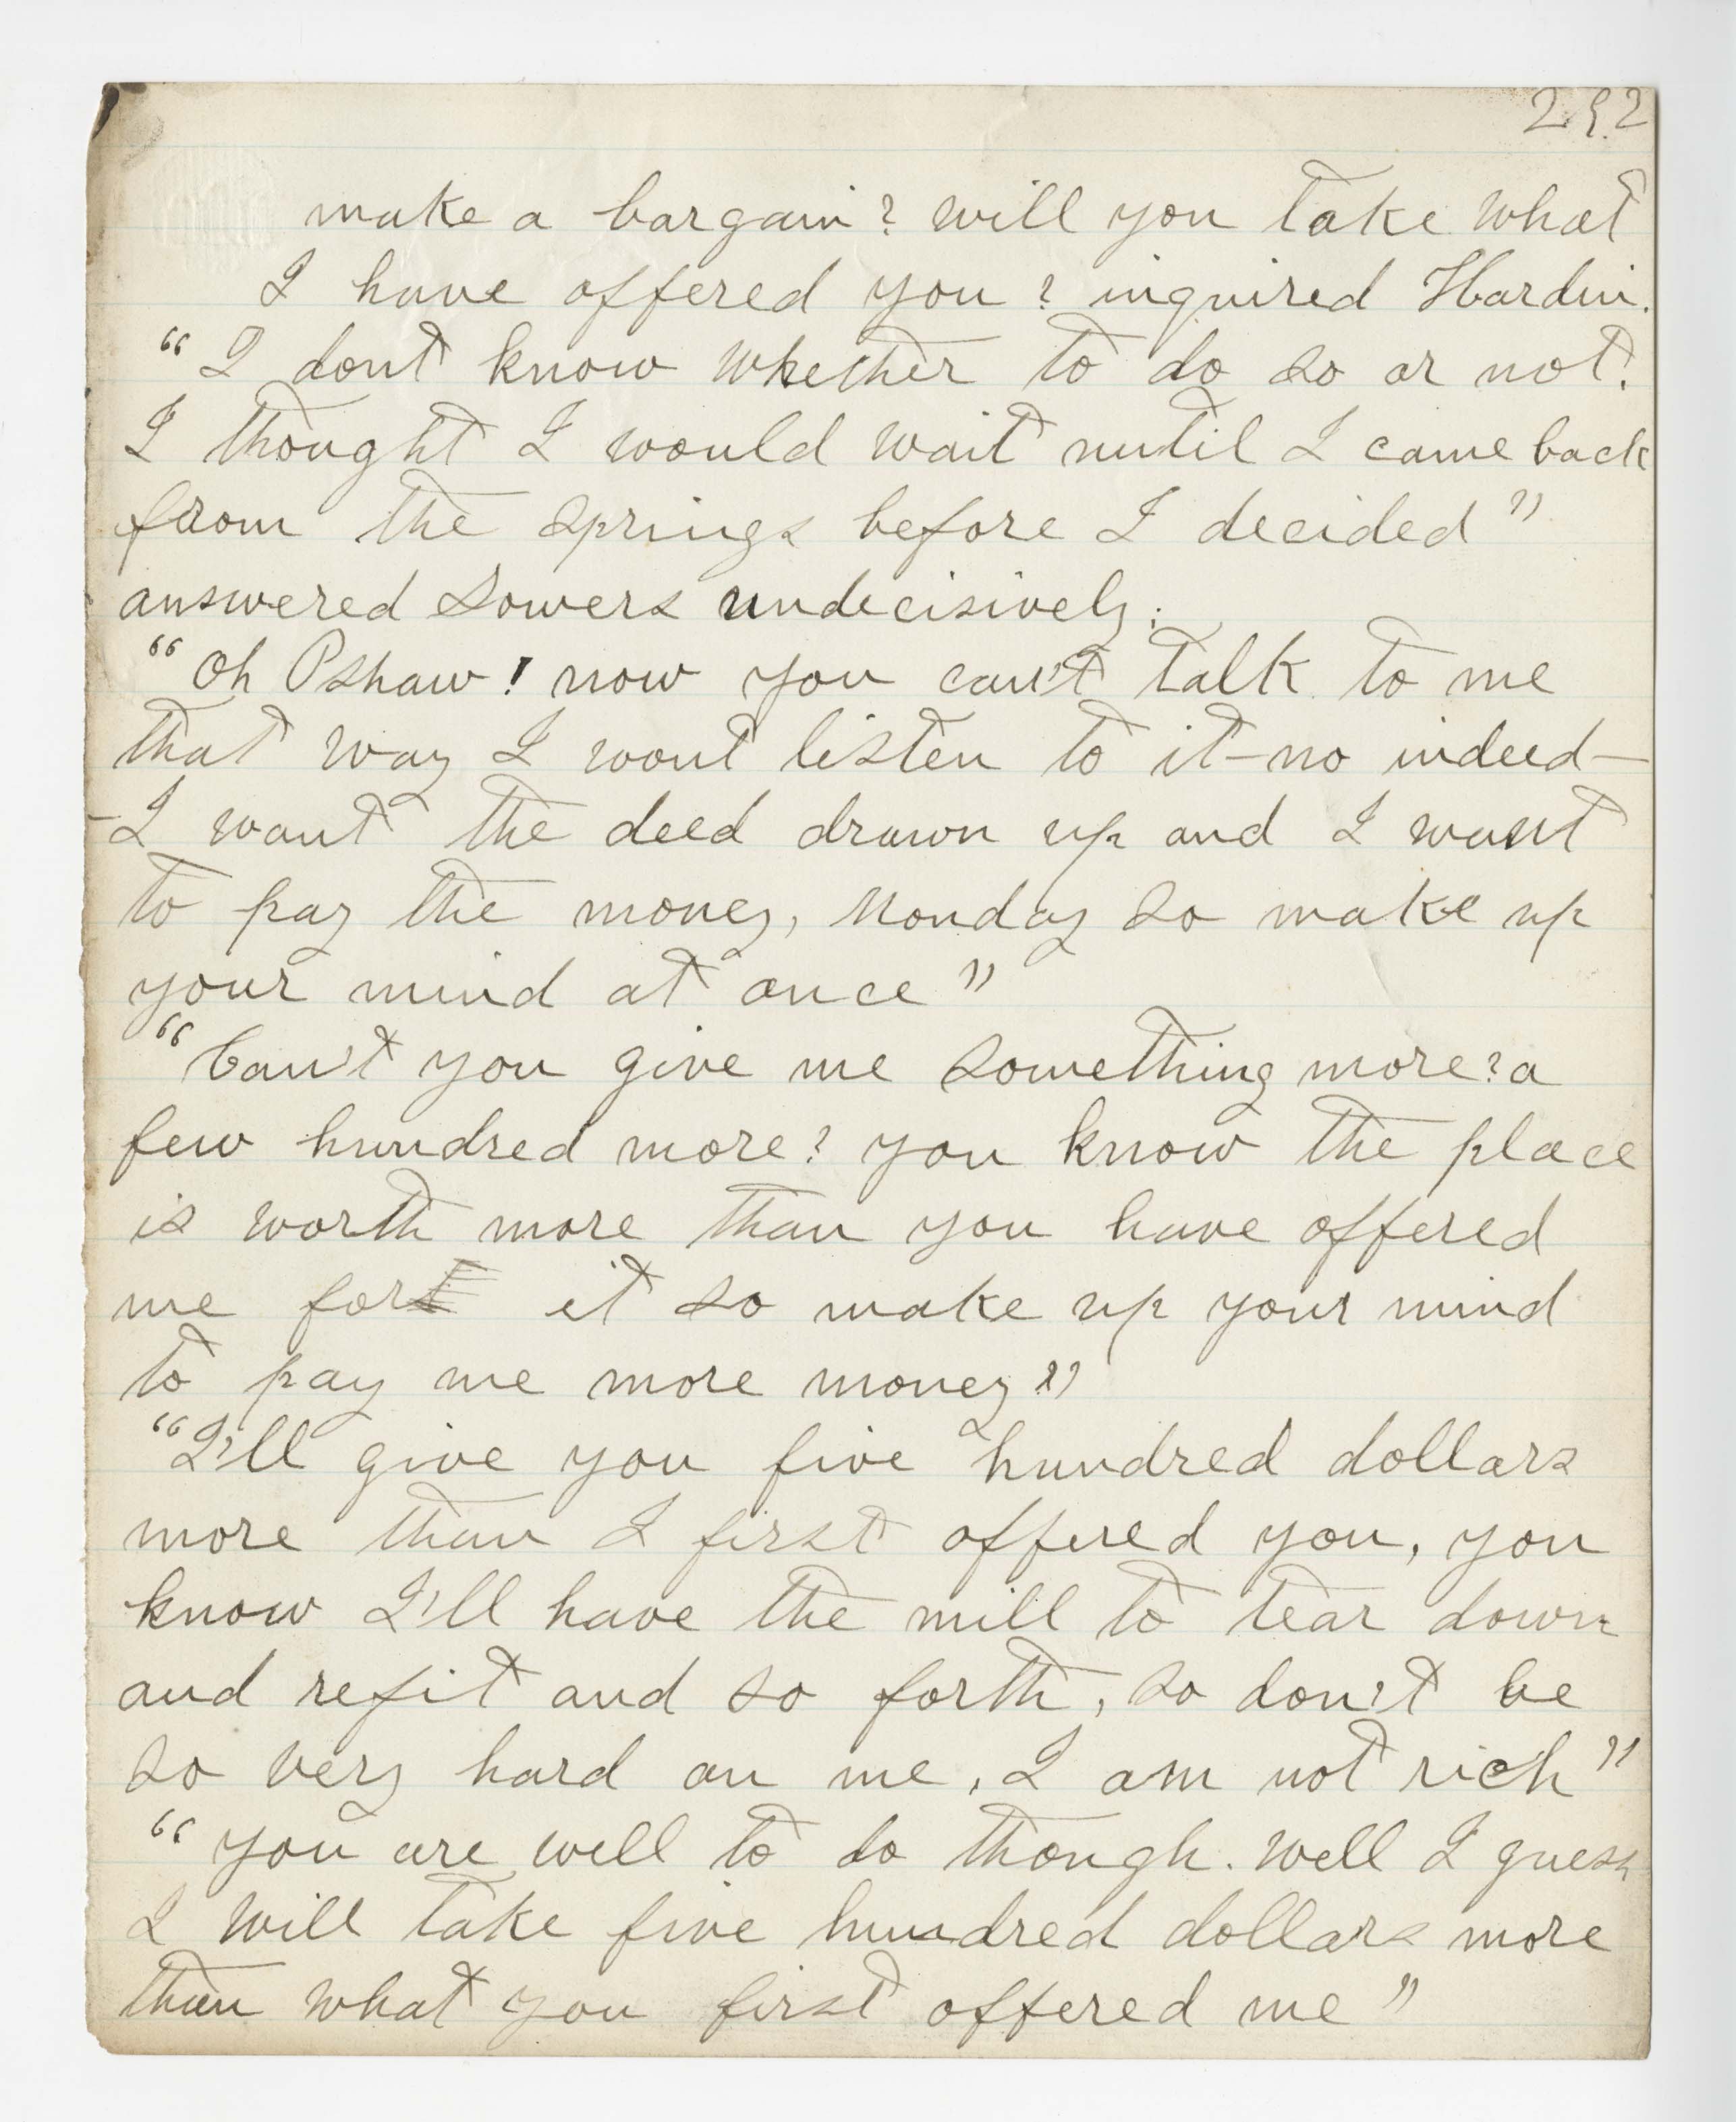 292
make a bargain? will you take what
I have offered you? inquired Hardin.
“I dont know whether to do so or not.
I thought I would wait until I came back
from the springs before I decided”
answered Sowers undecisively.
“Oh Pshaw! now you can't talk to me
that way I wont listen to it—no indeed—
—I want the deed drawn up and I want
to pay the money, Monday so make up
your mind at once”
“Can't you give me something more? a
few hundred more? you know the place
is worth more than you have offered
me for it so make up your mind
to pay me more money”
“I'll give you five hundred dollars
more than I first offered you, you
know I'll have the mill to tear down
and refit and so forth, so don't be
so very hard on me, I am not rich”
“you are well to do though. well I guess
I will take five hundred dollars more
than what you first offered me”